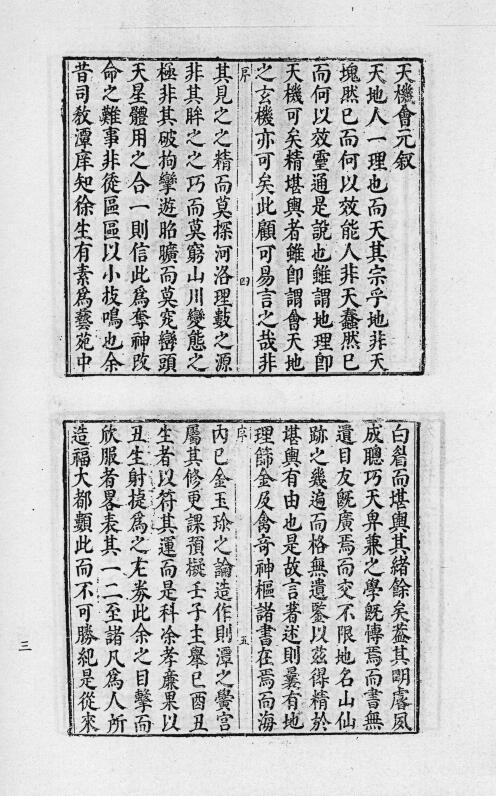 天機會元叙
天地人一理也而天其宗乎地非天
塊然已而何以效能人非天蠢然已
而何以效靈通是說也雖謂地理卽
天機可矣精堪輿者雖卽謂會天地
之玄機亦可矣此顧可易言之哉非
序
四
其見之之精而莫探河洛理數之源
非其眸之之巧而莫窮山川變態之
極非其破拘攣遊昭曠而莫究巒頭
天星體用之合一則信此爲奪神改
命之難事非徒區區以小技鳴也余
昔司教潭庠知徐生有素爲藝苑中
白眉而堪輿其緒餘矣蓋其明睿夙
成聰巧天畀兼之學旣博焉而書無
遺目友旣廣焉而交不限地名山仙
跡之幾遍而格無遺鑒以茲得精於
堪輿有由也是故言著述則曩有地
理篩金及禽奇神樞諸書在焉而海
序
五
內已金玉珍之論造作則潭之黌宮
屬其修更課預擬壬子主舉己酉丑
生者以符其運而是科凃孝廉果以
丑生射捷爲之左劵此余之目擊而
欣服者畧表其一二至諸凡爲人所
造福大都類此而不可勝紀是從來
三